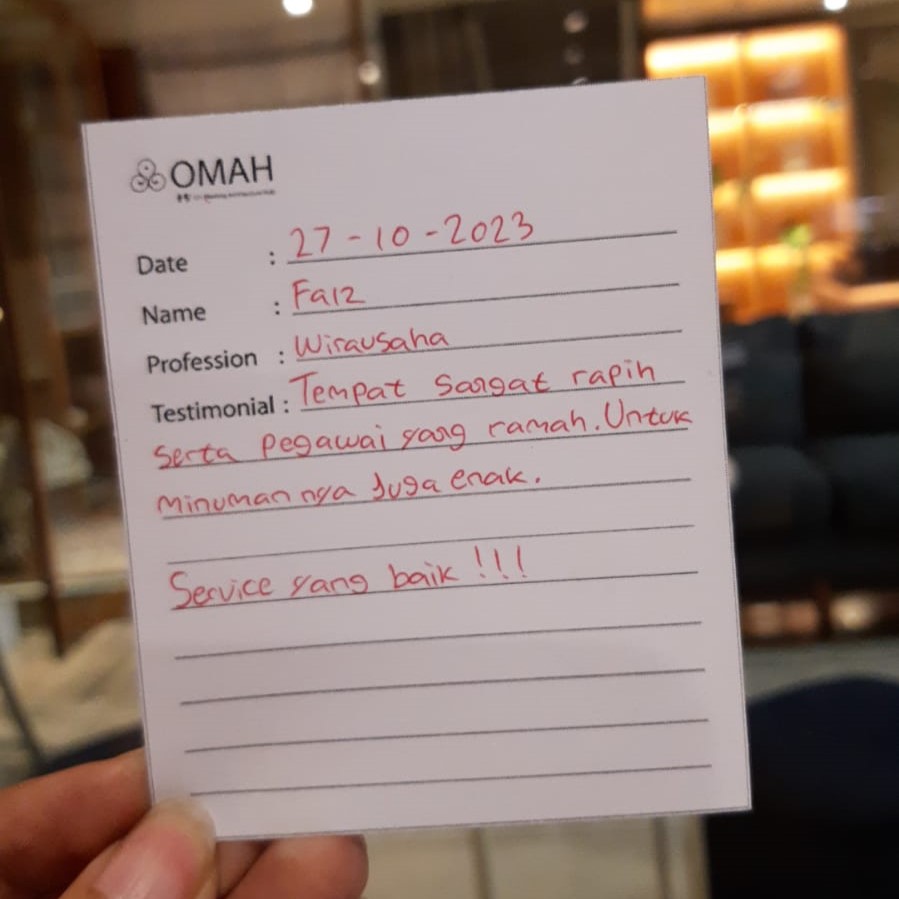 OMAH
Date : 27-10-2023
Name : Faiz
Profession : Wirausaha
Testimonial : Tempat Sangat rapih
Serta Pegawai yang ramah. Untuk
Minuman nya Juga enak.
Service yang baik !!!